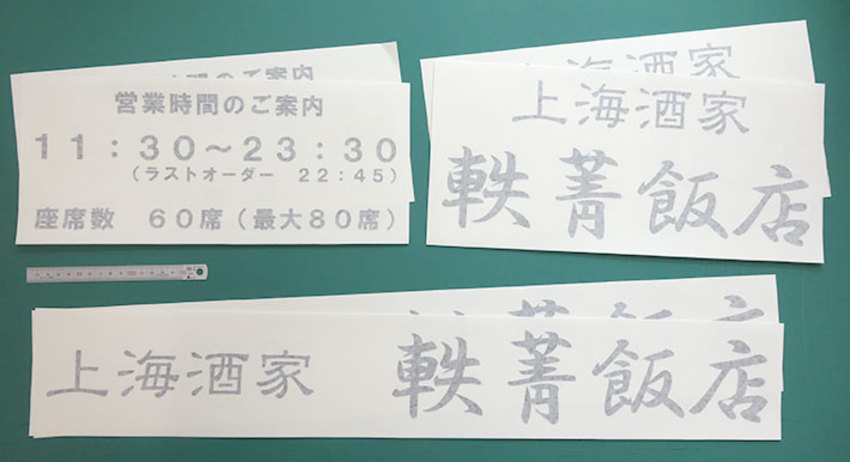 間のご案内
営業時間のご案内
11：30～23：30
（ラストオーダー　22：45）
座席数　60席（最大80席）
上海酒家
上海酒家
軼菁飯店
菁飯店
上海酒家　軼菁飯店